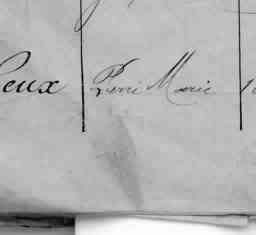 eux Pierre Marie